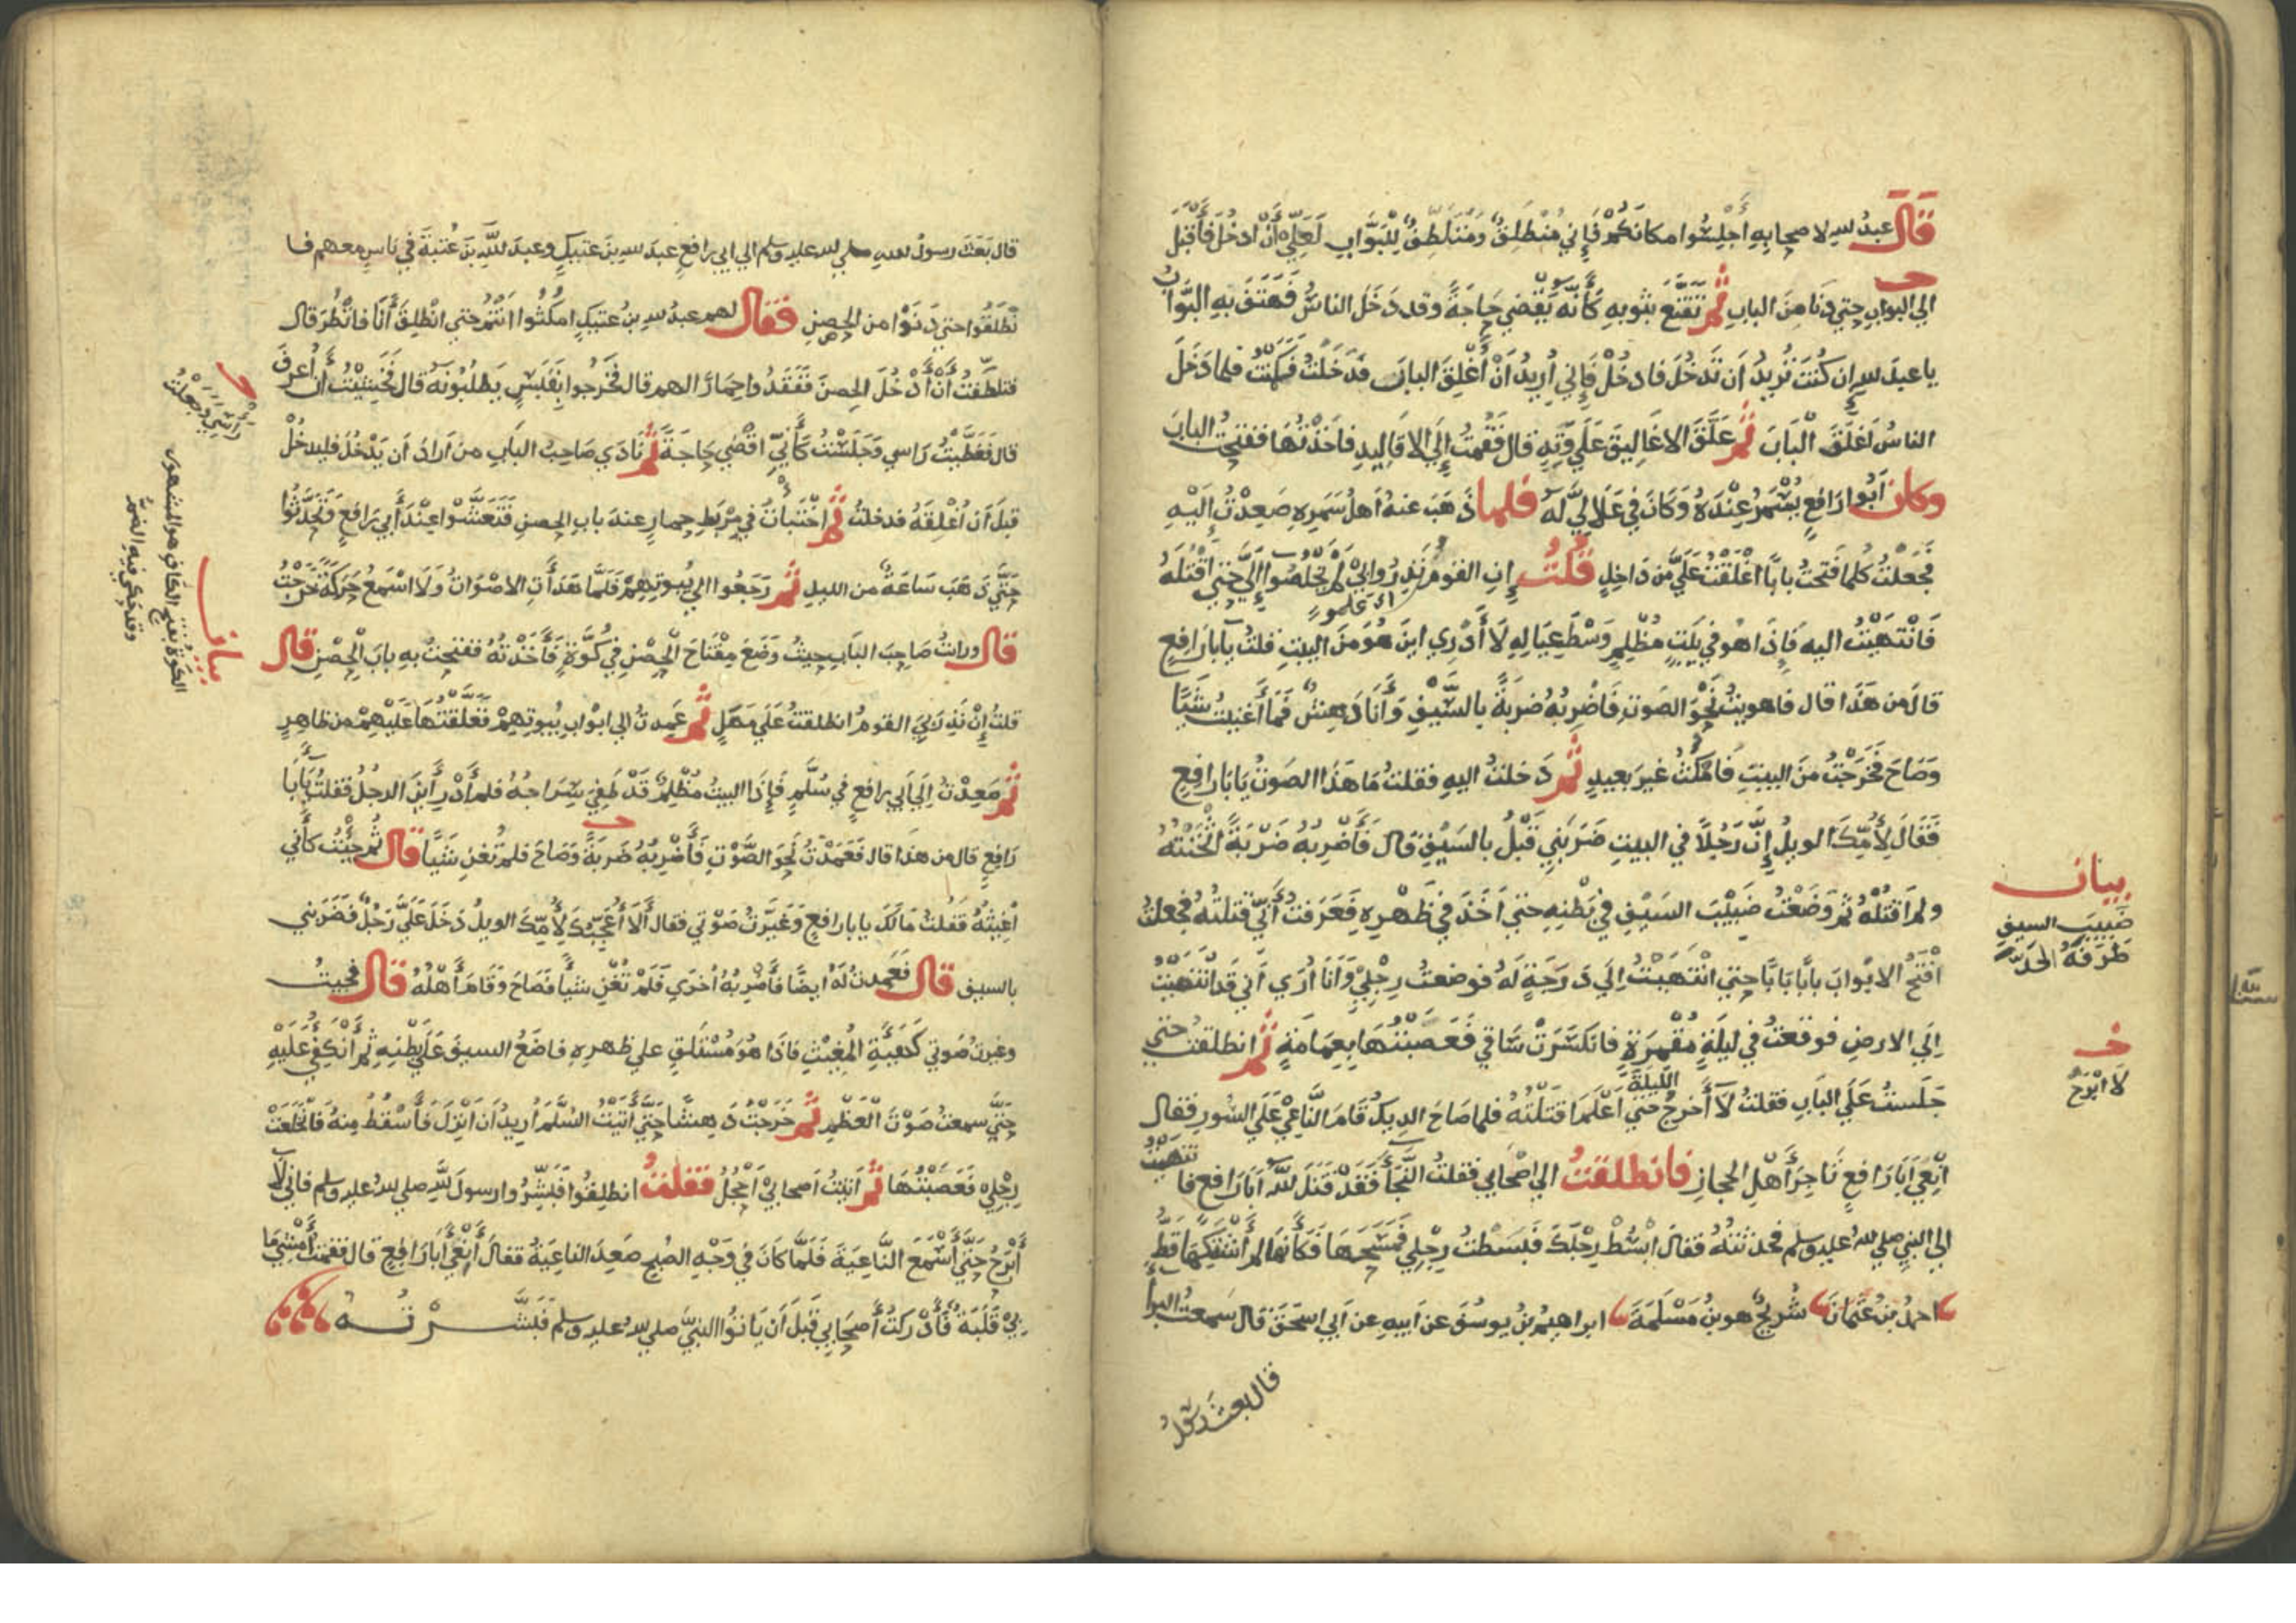 قَالَ عبدُ الله لاصحابِهِ أَجْلِسُوا مكانَكُمْ فَإِني مُنْطَلِقٌ وَمُتَلَطِّفٌ لِلْبَوَّابِ لَعَلِّي أَنْ ادخُلَ فَأَقْبَلَ
الي البوابِ حتي دَنَا مِنَ البابِ ثُمَّ تَقَنَّعَ بثوبِهِ كَأَنَّهُ يَقْضِي حَاجَةً وقد دَخَلَ الناسُ فَهَتَفَ بِهِ البَوَّابُ
يا عبدَ الله إن كُنْتَ تُرِيدُ أن تَدْخُلَ فادخُلْ فَإِنِي أُرِيدُ أَنْ أُغْلِقَ البابَ فَدَخَلْتُ فَكَمَنْتُ فلما دَخَلَ
الناسُ اغلَقَ الْبَابَ ثُمَّ عَلَّقَ الاغَالِيقَ عَلَي وَتِدٍ قال فَقُمْتُ إِلَي الاقَالِيدِ فاخَذْتُهَا ففتحتُ البابَ
وكان أَبُوا رَافِعٍ يُسْمَرُ عِنْدَهُ وَكَانَ فِي عَلَالِيَّ لَهُ فلما ذَهَبَ عنهُ أَهلُ سَمَرِهِ صَعِدْتُ إِلَيْهِ
فَجَعَلْتُ كلما فَتحتُ بابًا اغْلَقْتُ عَلَيَّ مِن دَاخِلٍ قُلْتُ إِنِ القومُ نَذِرُوا بِيْ لَمْ يَخْلُصُوا إِلَيَّ حتي أَقْتُلَهُ
فَانْتَهَيْتُ اليه فَإِذَا هُو فِي بَيْتٍ مُظْلِمٍ وَسْطَ عِيَالِهِ لَا أَدْرِي اينَ هُوَ مِنَ البيتِ فقلتُ يَا بَا رَافِعٍ
قالَ من هَذَا قال فاهويتُ نَحْوَ الصَوتِ فَاضْرِبُهُ ضربَةً بالسَّيْفِ وَأَنَا دَهِشٌ فَمَا أَغنيتُ شَيًا
وَصَاحَ فَخَرَجْتُ مِنَ البيتِ فَامْكُثُ غيرَ بعيدٍ ثُمَّ دَخلتُ اليهِ فقلتُ مَا هَذَا الصَوتُ يَا بَا رَافِعٍ
فَقَالَ لِأُمِّكَ الويلُ إِنَّ رَجُلًا في البيتِ ضَرَبَنِي قَبْلُ بالسَيْفِ قَالَ فَأَضْرِبُهُ ضَرْبَةً أَثْخَنَتْهُ
ولم أَقْتُلْهُ ثم وَضَعْتُ ضَبِيْبَ السَيْفِ في بَطْنِهِ حتي أخَذَ في ظَهْرِهِ فَعَرَفتُ أَنِّي قتلتُهُ فجعلتُ
افْتَحُ الابْوابَ بابًا بَابًا حتي انْتَهَيْتُ إِلَي دَرَجَةٍ لَهُ فوضعتُ رِجْلِيْ وَأَنَا أُرَي أني قد انْتَهَيْتُ
إِلَي الارضِ فوقعتُ في ليلَةٍ مُقْمِرَةٍ فانكسَرَتْ سَاقِي فَعَصَبْتُهَا بِعِمَامَةٍ ثُمَّ انطلقتُ حتي
جَلَستُ عَلَي البَابِ فقلتُ لَا أَخرجُ الليلَةَ حَتي أَعْلَمَ اَقَتَلْتُهُ فلما صَاحَ الديكُ قَامَ النَّاعِيْ عَلَي السُورِ فقال
أَنْعَي أَبَا رَافِعٍ تَاجِرَ أَهْلِ الحجازِ فانطلقتُ الي اصْحابي فقلتُ النَّجَاءَ فَقَدْ قَتَلَ اللهُ أَبَا رَافعٍ فانتهيتُ
الي النبيِ صلي الله عليه وسلم فحدثتهُ فقالَ أبْسُطْ رِجْلَكَ فَبَسَطْتُ رِجْلِي فَمَسَحَهَا فَكَأَنَّهَا لم أَشْتَكِهَا قَطُّ
احمدُ بنُ عُثمانَ شُريحٌ هو بنُ مَسْلَمَةَ ابراهِيْمُ بنُ يوسُفَ عن ابيهِ عن أبي اسحَقَ قال سمعتُ البرا
قال بعث رسولُ
بيان
ضَبِيبَ السيفِ
طَرَفُهُ الحَدُّ
خـ
لَا أَبْرَحُ
قال بَعَثَ رسولُ اللهِ صلي الله عليه وسلم الي ابي رافعٍ عبدَ الله بنَ عتيكٍ وعبدَ اللَّهِ بنَ عُتبةَ في ناسٍ معهم فا
نْطَلَقُوا حتي دَنَوْا من الحِصنِ فَقَالَ لهم عبدُ الله بنُ عتيكٍ امكُثُوا أنتُمْ حتي انْطَلِقَ أَنَا فانْظُرَ قال
فتلطَّفتُ أَنْ أَدْخُلَ الحِصنَ فَفَقَدُوا حِمَارًا لهم قال فَخَرجُوا بِقَبَسٍ يَطلُبُونَهُ قال فَخَشِيْتُ ان أُعرفَ
قال فَغَطَّيْتُ رَاسي وَجَلَسْتُ كَأَنِّيْ اقْضِي حَاجَةً ثُمَّ نَادَي صَاحِبُ البَابِ من أَرادَ أن يَدْخُلَ فليدخُلْ
قبل أن أُغْلِقَهُ فدخلتُ ثُمَّ اخْتَبأتُ في مِرْبَطِ حِمارٍ عندَ بابِ الحِصنِ فَتَعَشَّوْا عِنْدَ أَبي رَافعٍ وَتَحَدَّثُوا
حَتَّي ذَهَبَ سَاعَةٌ من الليلِ ثُمَّ رَجَعُوا الي بُيوتِهِمْ فَلَمَّا هَدَأَتِ الاصْوَاتُ وَلَا اسْمَعُ حَرَكَةً خَرَجْتُ
قال ورايتُ صَاحِبَ البَابِ حيثُ وَضَعَ مِفْتَاحَ الْحِصْنِ في كُوَّةٍ فَأَخَذْتُهُ ففتحتُ بهِ بابَ الْحِصْنِ قال
قلتُ إِنْ نَذِرَ بِيَ القومُ انطلقتُ عَلَي مَهَلٍ ثُمَّ عَمِدتُ الي ابوابِ بُيوتِهِمْ فَغَلَّقْتُهَا عَلَيْهِمْ من ظاهِرٍ
ثُمَّ صَعِدْتُ إِلَي أَبي رافعٍ في سُلَّمٍ فَإِذَا البيتُ مُظْلِمٌ قَدْ طَفِيَ سِرَاجُهُ فلم أَدْرِ أَيْنَ الرجلُ فقلتُ يَا بَا
رَافعٍ قال من هَذَا قال فَعَمَدْتُ نَحْوَ الصَّوْتِ فَأَضْرِبُهُ ضَربَةً وَصَاحَ فلم تُغنِ شَيًا قَالَ ثُم جِئْتُ كَأَني
أُغِيثُهُ فَقُلتُ مَالَكَ يا با رافعٍ وَغَيَّرتُ صَوْتي فقال أَلَا أُعَجِّبُكَ لِأُمِّكَ الويلُ دَخَلَ عَلَيَّ رَجُلٌ فَضَرَبَني
بالسيفِ قال فَعَمِدتُ لَهُ ايضًا فَأَضْرِبُهُ أُخرَي فَلَمْ تُغْنِ شيأً فَصَاحَ وَقَامَ أَهْلُهُ قَالَ فجيتُ
وغيرتُ صَوتي كَهَيئَةِ المُغِيْثِ فاذَا هُوَ مُسْتَلقٍ علي ظهرِهِ فاضَعُ السيفَ عَلَي بَطْنِهِ ثم أَنْكَفِيُ عَلَيْهِ
حَتَّي سمعتُ صَوْتَ الْعَظْمِ ثُمَّ خَرَجْتُ دَهِشًا حَتَّي أَتَيْتُ السُّلَّمَ أُريدُ أن اَنْزِلَ فَأَسْقُطُ مِنهُ فَانْخَلَعَتْ
رِجْلِيْ فَعَصَبْتُهَا ثُمَّ اتيتُ اصحابيْ أَحْجُلُ فَقُلْتُ انطلِقُوا فَبَشِّرُوا رسولَ اللَّهِ صلي الله عليه وسلم فاني لَا
أَبْرَحُ حَتَّي أَسْمَعَ النَّاعِيَةَ فَلَمَّا كَانَ في وَجْهِ الصُبحِ صَعِدَ الناعِيَةُ فقالَ أَنْعَي أَبَا رَافِعٍ قال فقمتُ أَمْشِي مَا
بِيْ قَلَبَةٌ فَأَدْرَكتُ أَصحَابي قَبلَ أن يَاتُوا النبيَّ صلي الله عليه وسلم فَبَشَّرْتُهُ
بيان
الكَوَّةُ بفتحِ الكافِ هو المشهور
وقد حُكي فيه الضمُّ